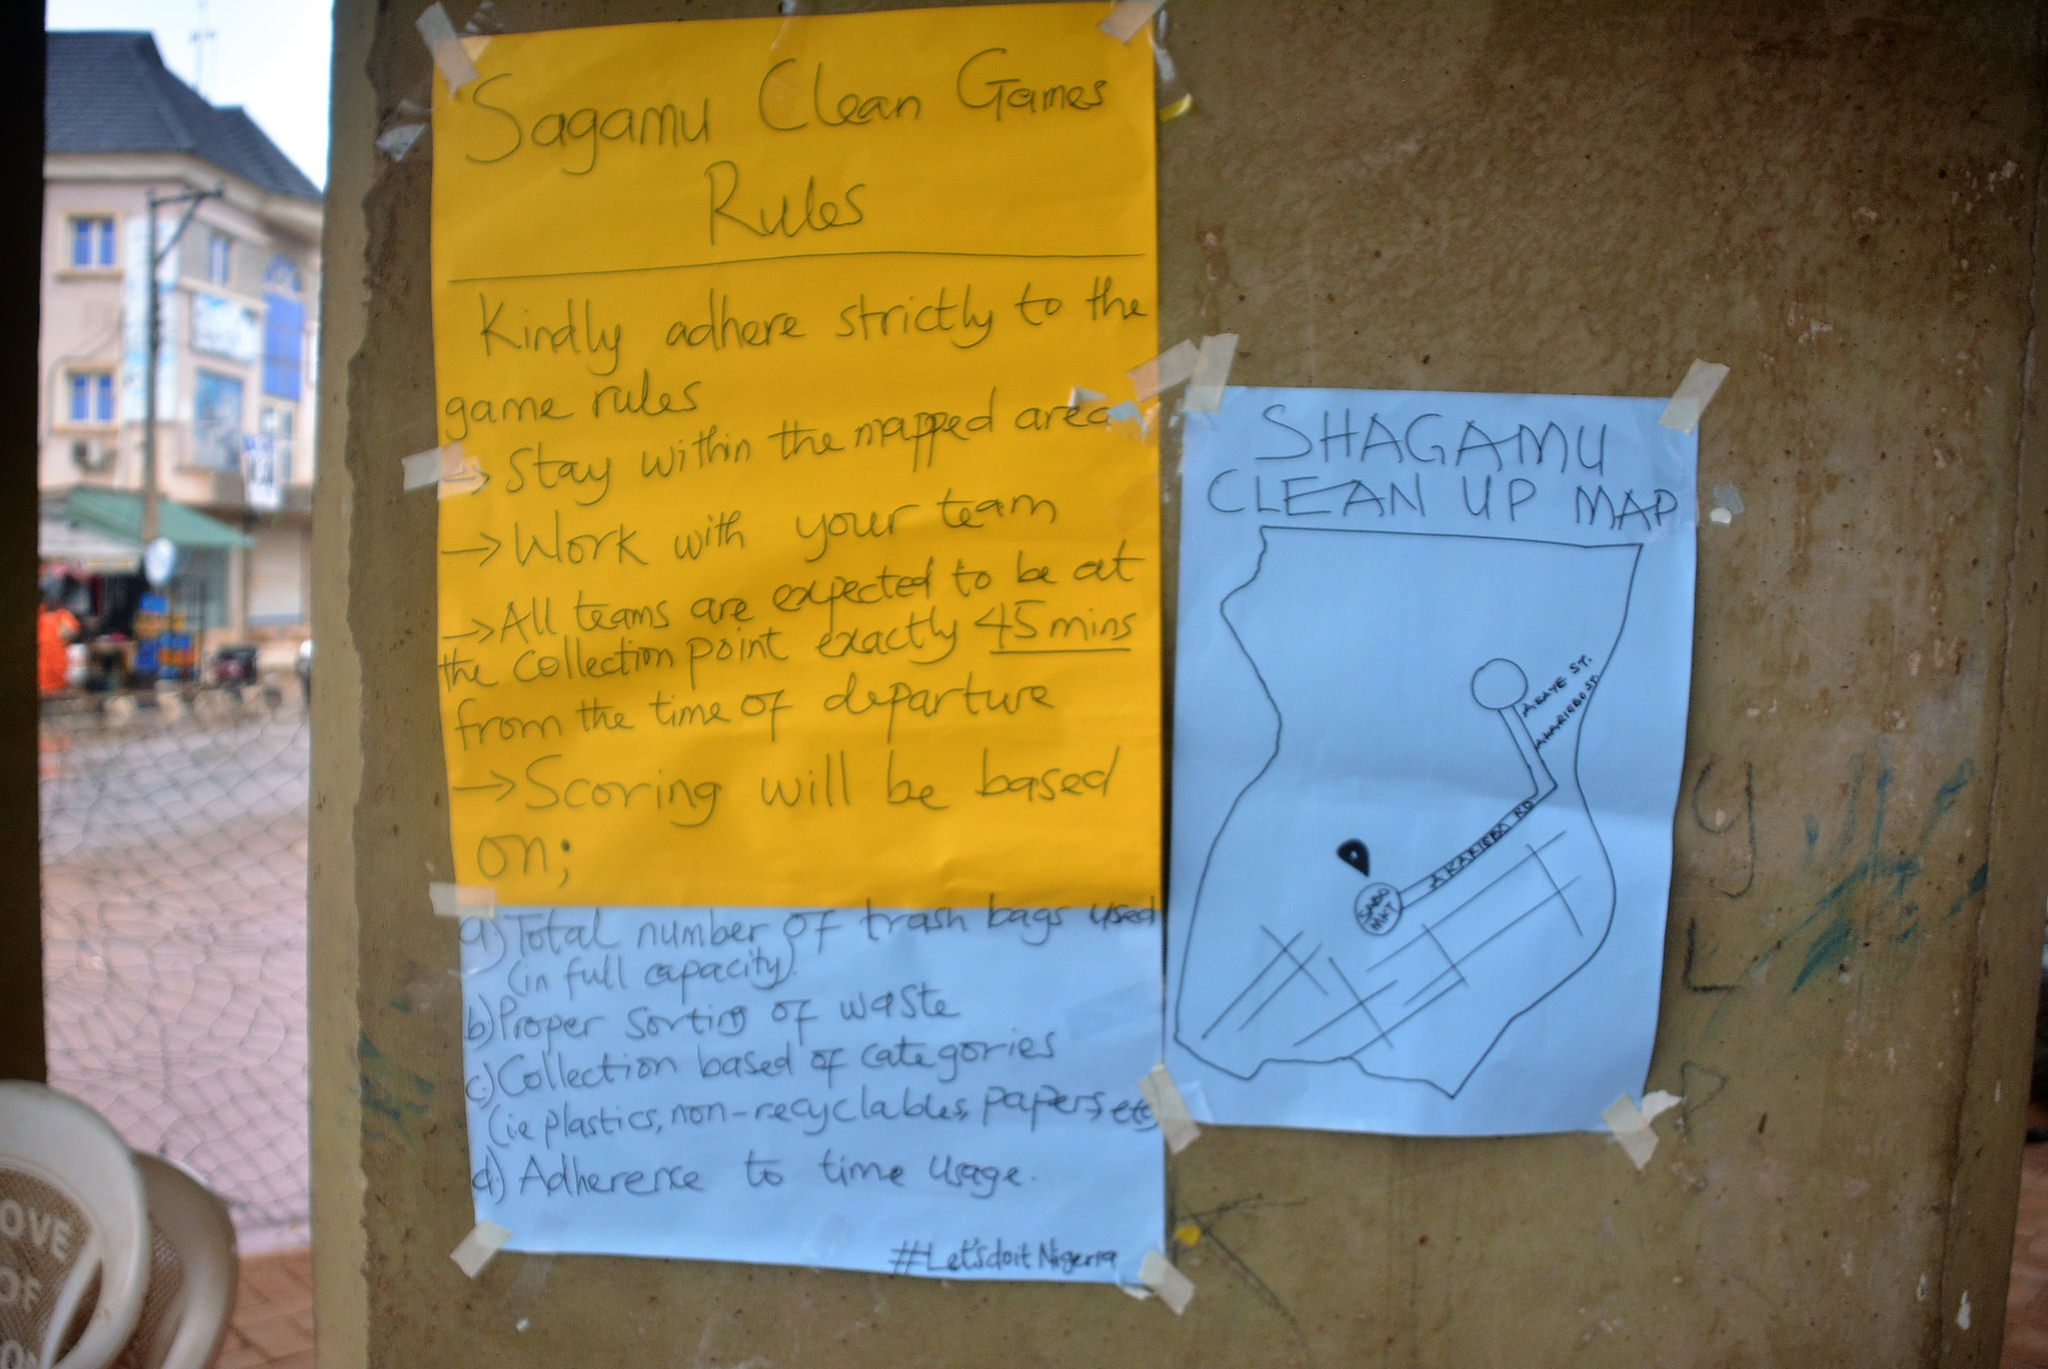 Sagamu Clean Games
Rules
Kindly adhere strictly to the
game rules
→ Stay within the mapped area
→ Work with your team
→ All teams are expected to be at
the collection point exactly 45 mins
from the time of departure
→ Scoring will be based
on;
a) Total number of trash bags used
(in full capacity).
b) Proper sorting of waste
c) Collection based of categories
(ie plastics, non-recyclables, papers, etc)
d) Adherence to time usage.
#Let'sdoitNigeria
SHAGAMU
CLEAN UP MAP
AKARIGBO ST.
AKARIGBO RD
SABO
MKT
OVE
OF